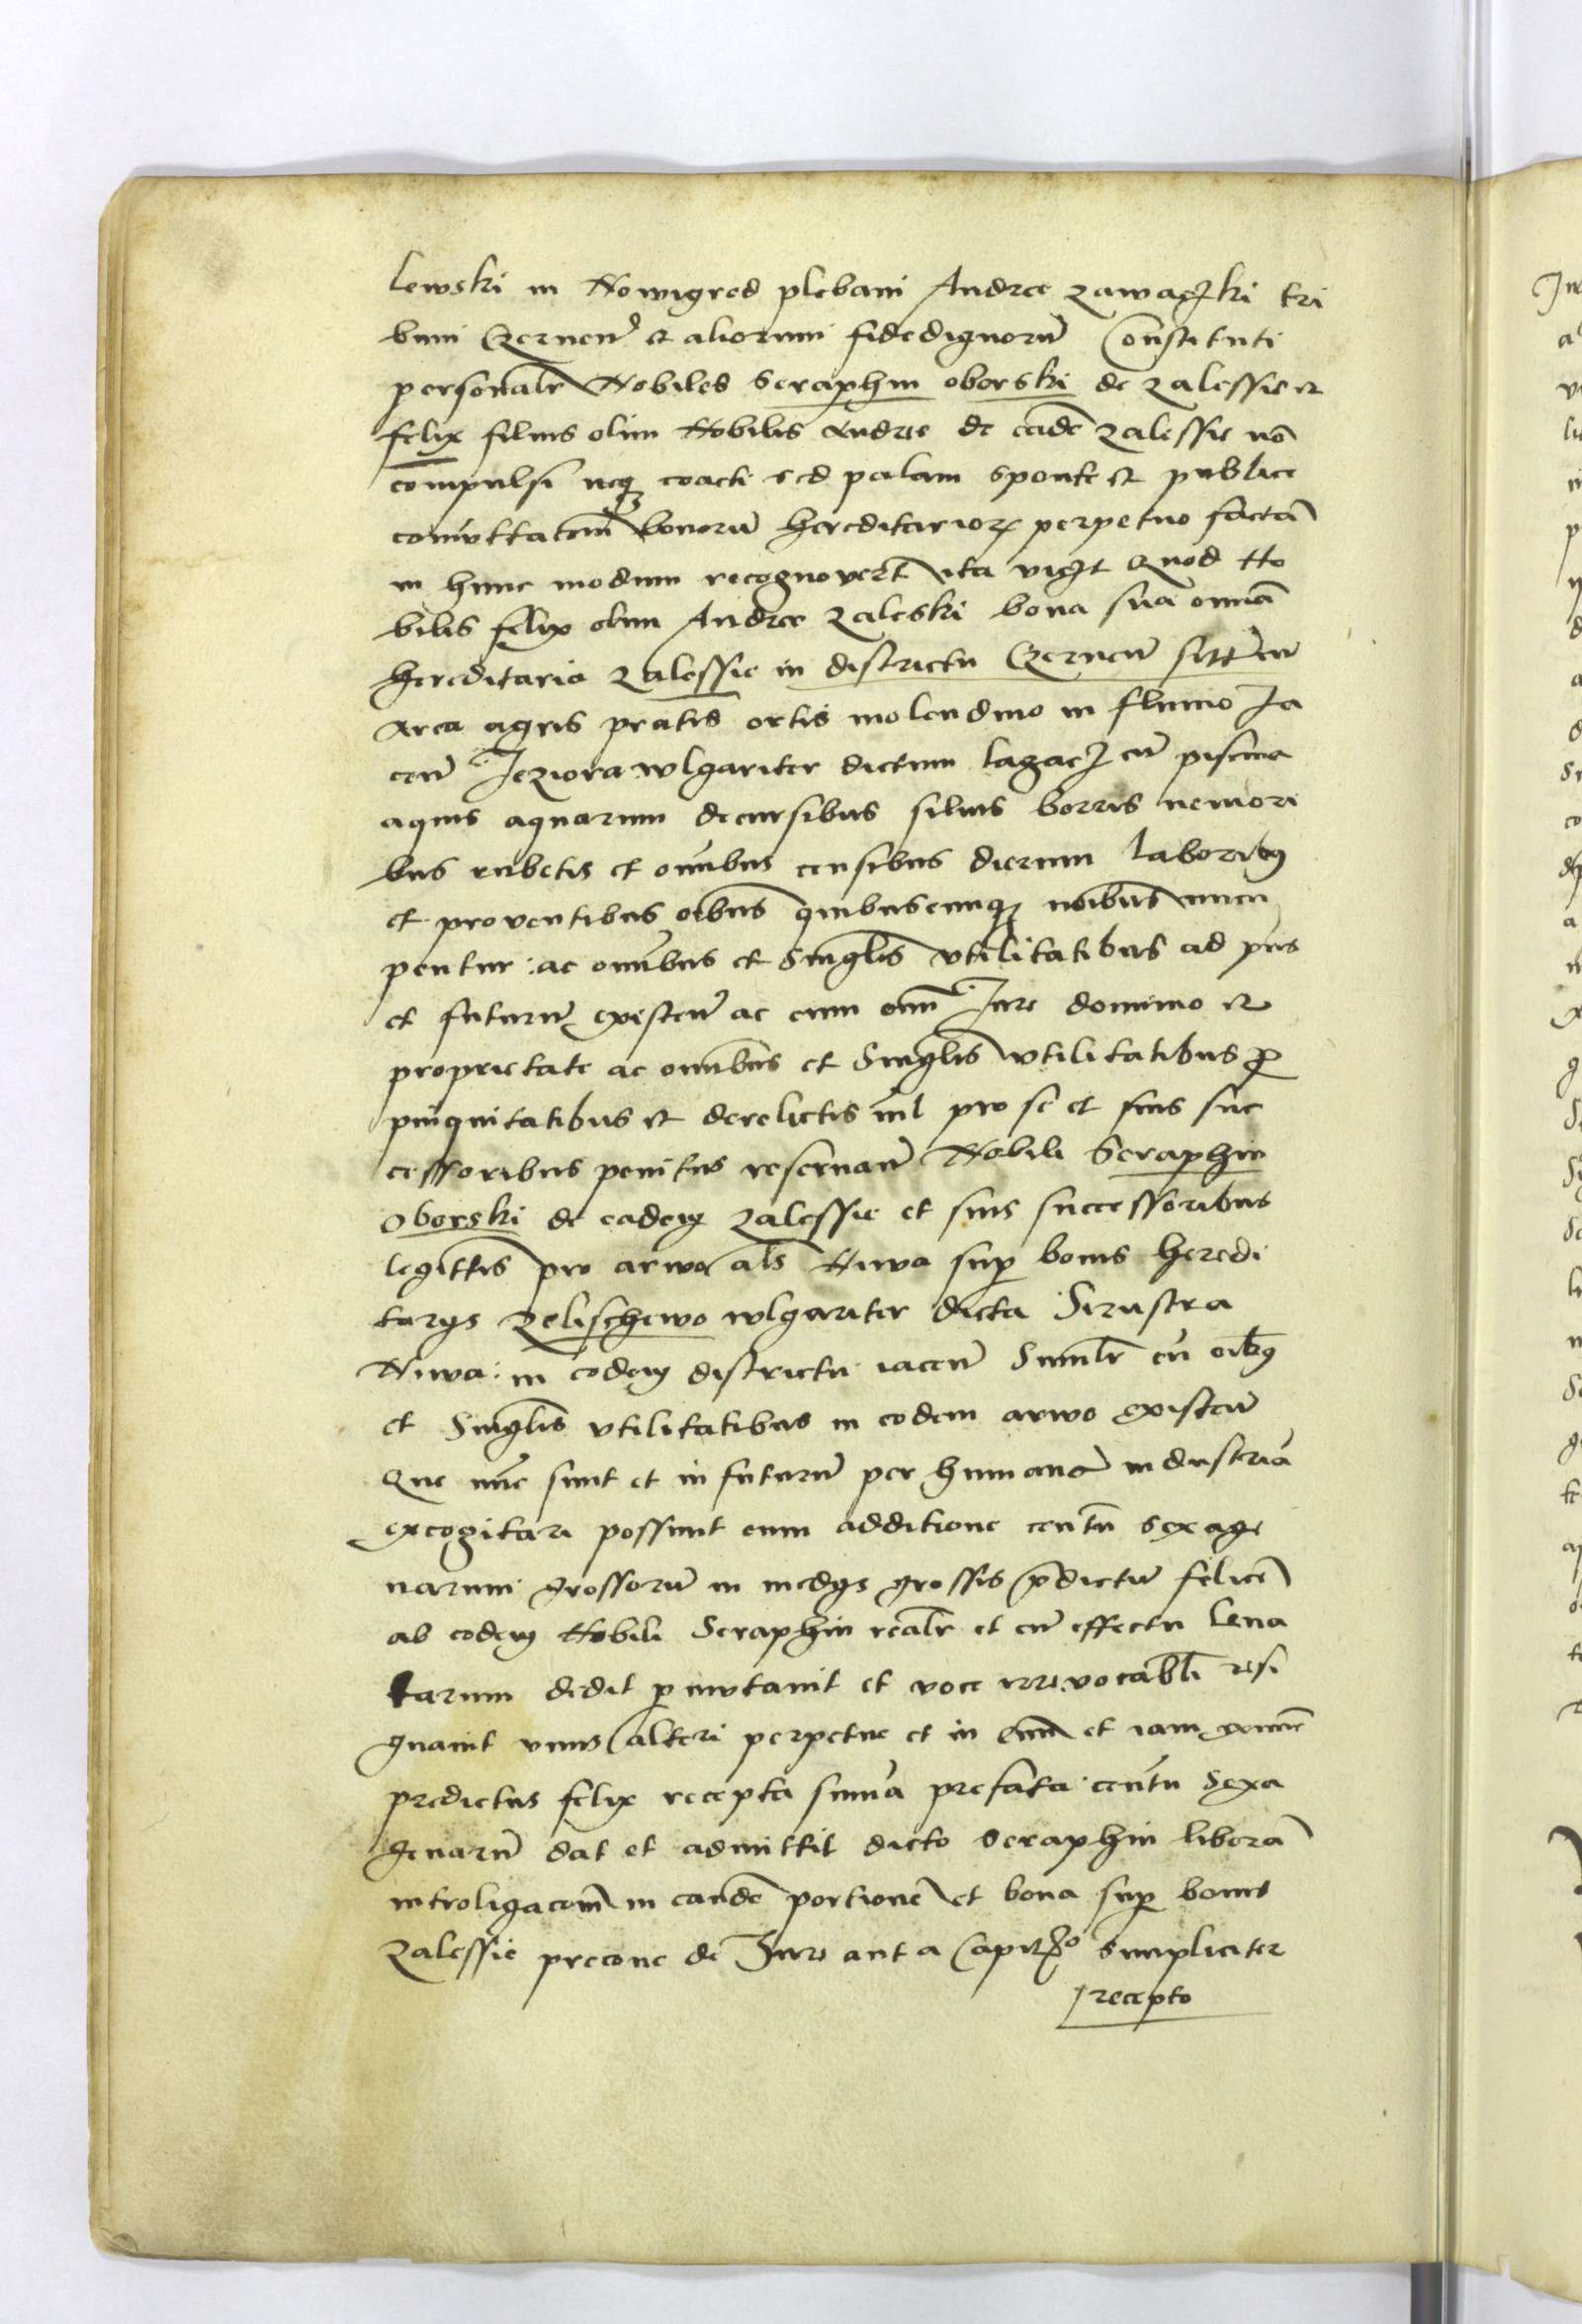 lewski in Nowigrod plebani Andree Zawaczki tri
buni Czernen̄ et aliorum fidedignorū Constituti
personalr̄ Nobiles Seraphin oborski de Zalessie et
felix filius olim Nobilis Andree de eadē Zalessie nō
compulsi neq coacti sed palam sponte et publice
bonorū hereditarior perpetuo factā
in hunc modum recognoverūt ita vigt Quod No
bilis felix olim Andree Zaleski bona sua omnia
hereditaria Zalessie in districtu Czernen̄ cū
area agris pratis ortis molendino in fluvio Ja
cen̄ Jeziora wlgariter dictum cū piscina
aquis aquarum decursibus silvis borris nemori
bus rubetis et omībus censibus dierum laborib9
et proventibus oībus quibuscunq noībus nuncu
pentur ac omībus et Singlis vtilitatibus ad pn̄s
et futurū existen̄ ac cum omī Jure dominio et
proprietate ac omībus et Singlis vtilitatibus p̄
pinquitatibus et derelictis nil pro se et suis suc
cessoribus penitus reservan̄ Nobili Seraphin
Oborski de eadem Zalessie et suis successoribus
legittis pro arwo als Niwa sup bonis heredi
tarys Zelischewo wlgariter dicta Sirustra
Niwa in eodem districtu iacen̄ Similr̄ cū oib9
et Singlis vtilitatibus in eodem arwo existen̄
Que nūc sunt et in futurū per humanā industriā
excogitari possunt cum additione centū sexage
narum grossorū in medys grossis p̄dictū felicē
ab eodem Nobili Seraphin realr̄ et cū effectu leva
tarum dedit p̄mutavit et voce irrevocabli resi
gnavit vnus alteri perpetue et in evū et iam exnūc
predictus felix recepta sum̄a prefata centū sexa
genarū dat et admittit dicto Seraphin liberā
introligacōm in eandē portionē et bona sup bonis
Zalessie precone de Jure aut a Capitō simpliciter
recepto